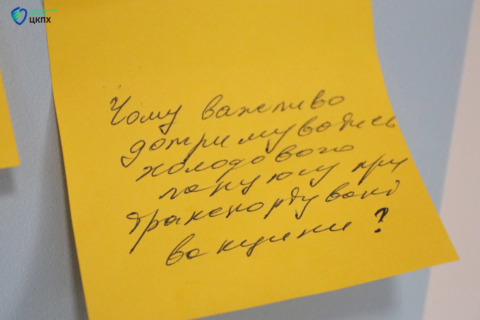 ЦКПХ
Чому важливо
дотримуватись
холодового
ланцюгу при
транспортуванні
вакцини?